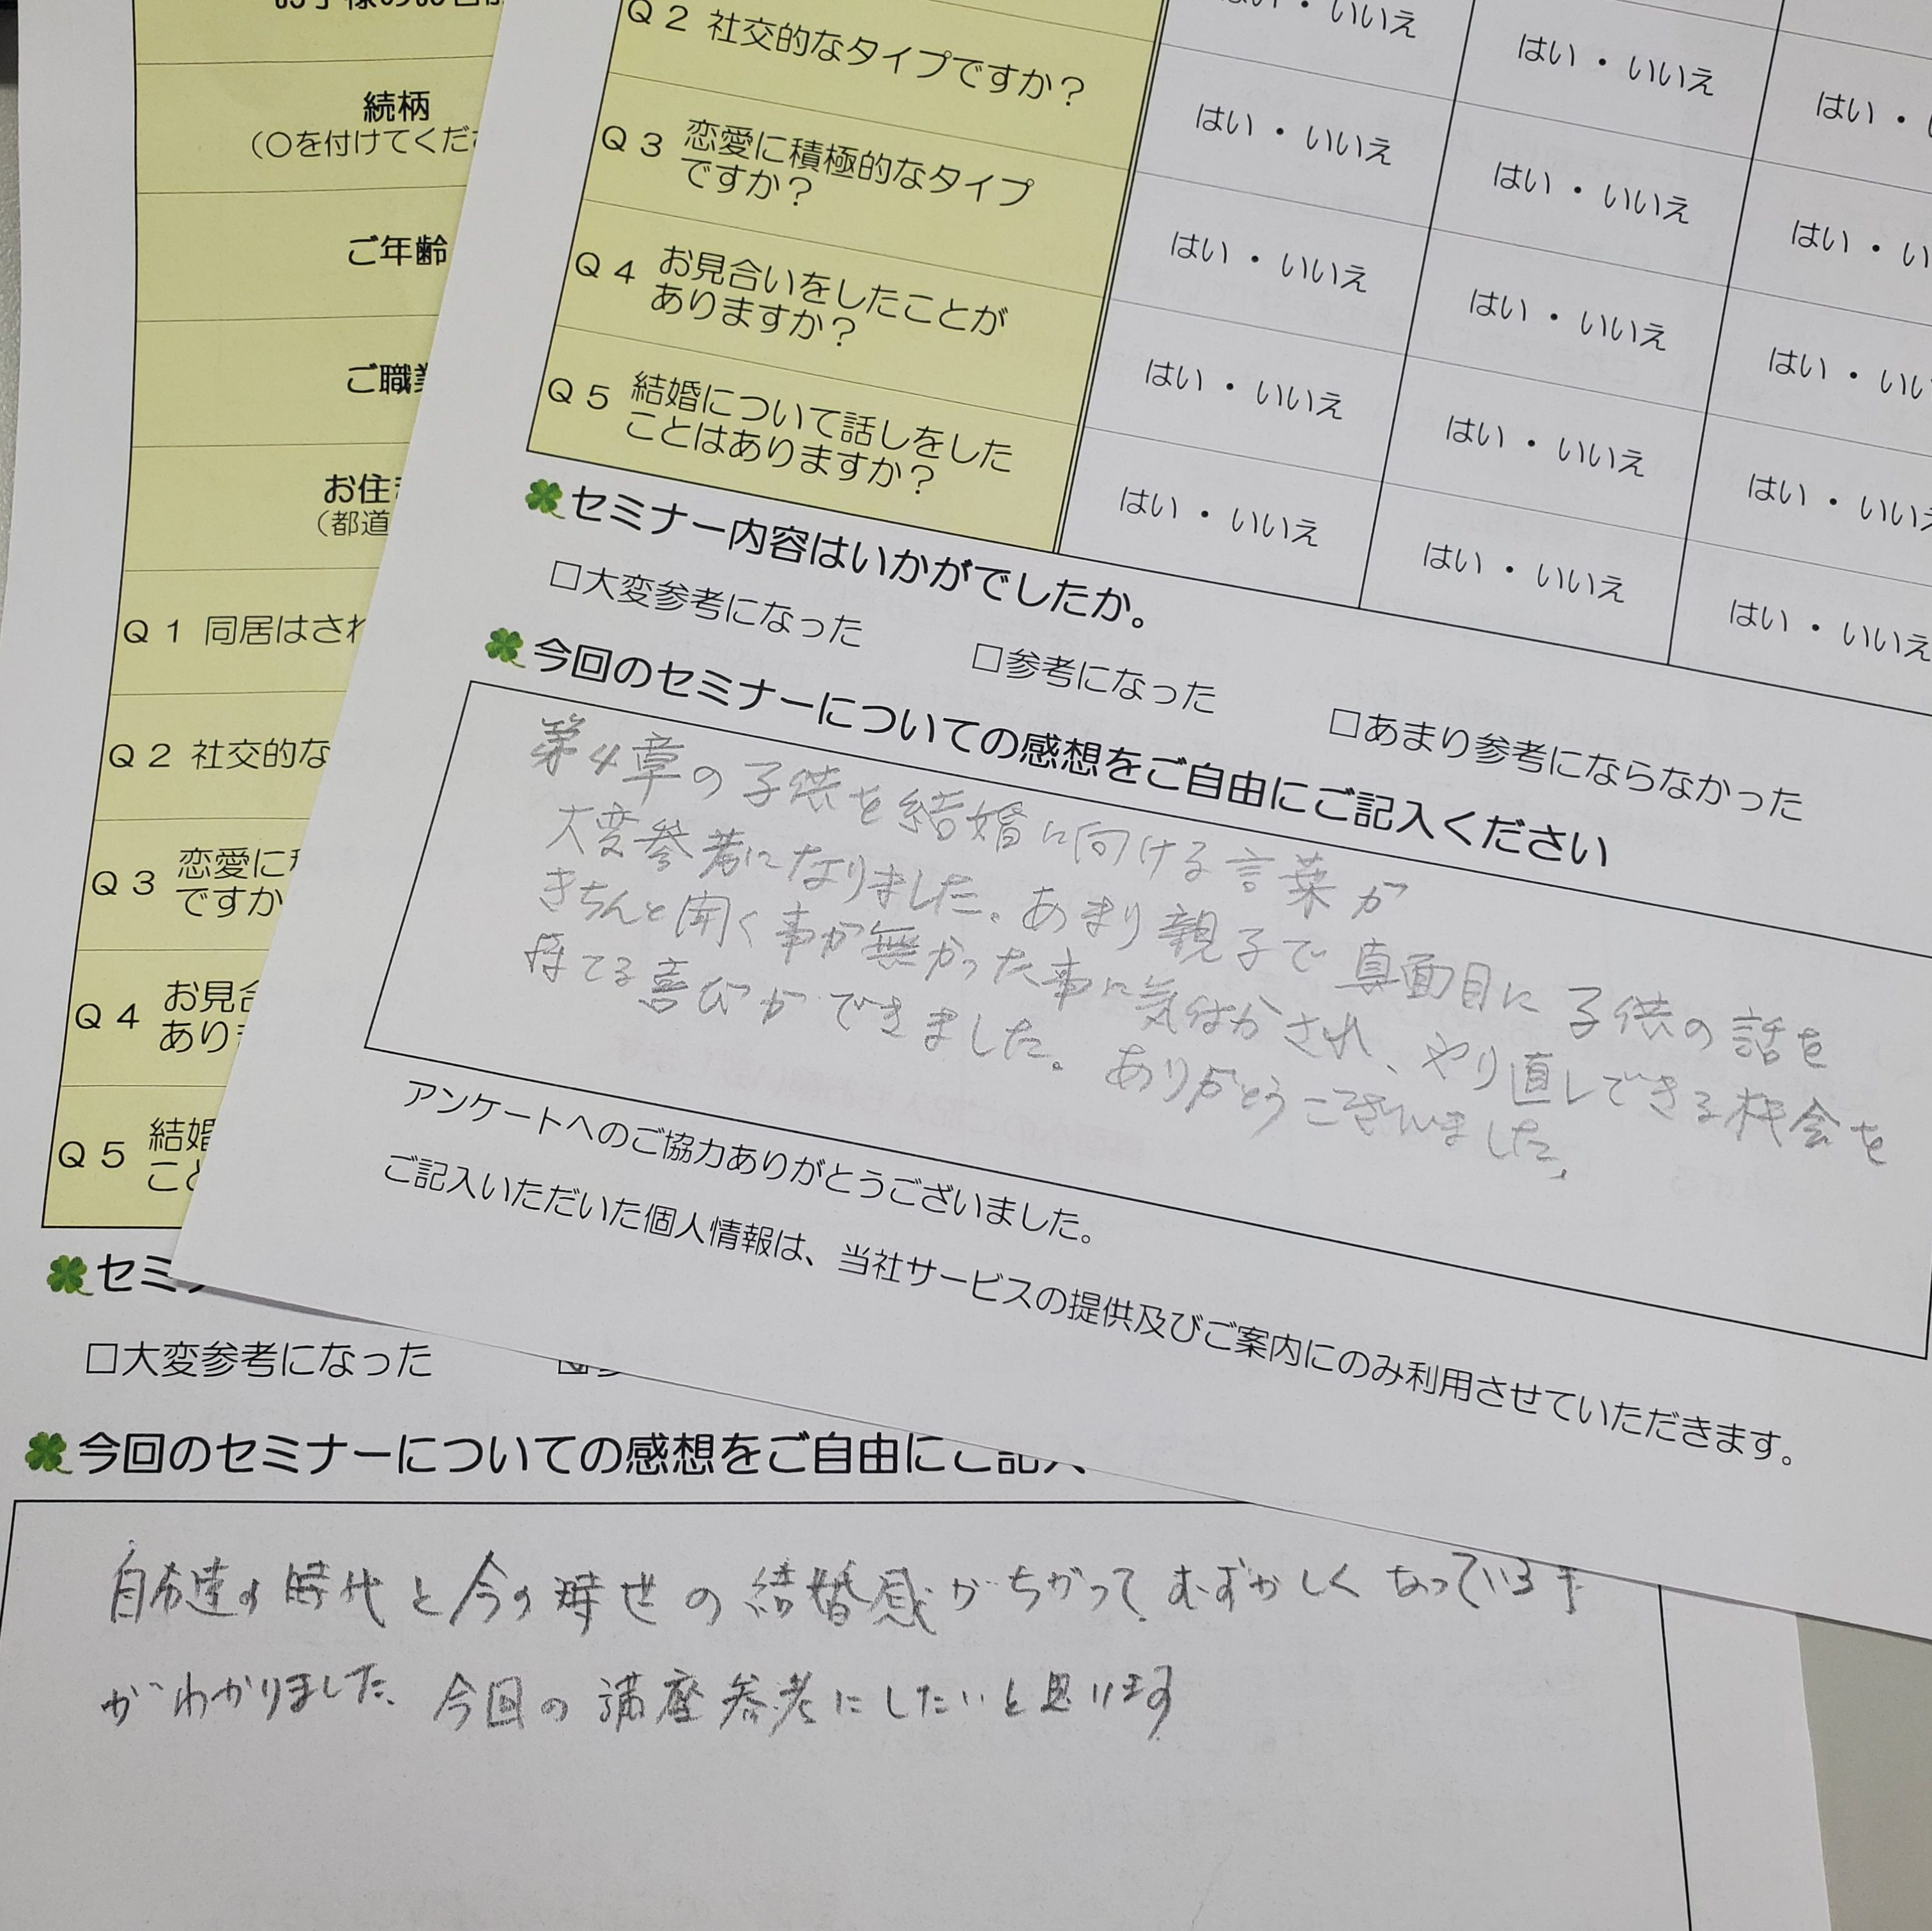 続柄
(〇を付けてくだ
ご年齢
ご職
お住
(都道
Q1 同居はされ
Q2 社交的な
Q3 恋愛に
ですか
Q4 お見合
あり
Q5 結婚
こと
セミ
□大変参考になった
今回のセミナーについての感想をご自由にご記入
自分達の時代と今の時世の結婚感がちがって、むずかしくなっている事
がわかりました、今回の講座参考にしたいと思います
Q2 社交的なタイプですか？
はい・いいえ はい・いいえ はい・
Q3 恋愛に積極的なタイプ
ですか？
はい・いいえ はい・いいえ はい・い
Q4 お見合いをしたことが
ありますか？
はい・いいえ はい・いいえ はい・いい
Q5 結婚について話しをした
ことはありますか？
はい・いいえ はい・いいえ はい・いいえ
はい・いいえ はい・いいえ はい・いいえ
セミナー内容はいかがでしたか。
□大変参考になった □参考になった □あまり参考にならなかった
今回のセミナーについての感想をご自由にご記入ください
第4章の子供を結婚に向ける言葉が
大変参考になりました。あまり親子で真面目に子供の話を
きちんと聞く事が無かった事に気付かされ、やり直しできる機会を
持てる喜びができました。ありがとうございました。
アンケートへのご協力ありがとうございました。
ご記入いただいた個人情報は、当社サービスの提供及びご案内にのみ利用させていただきます。